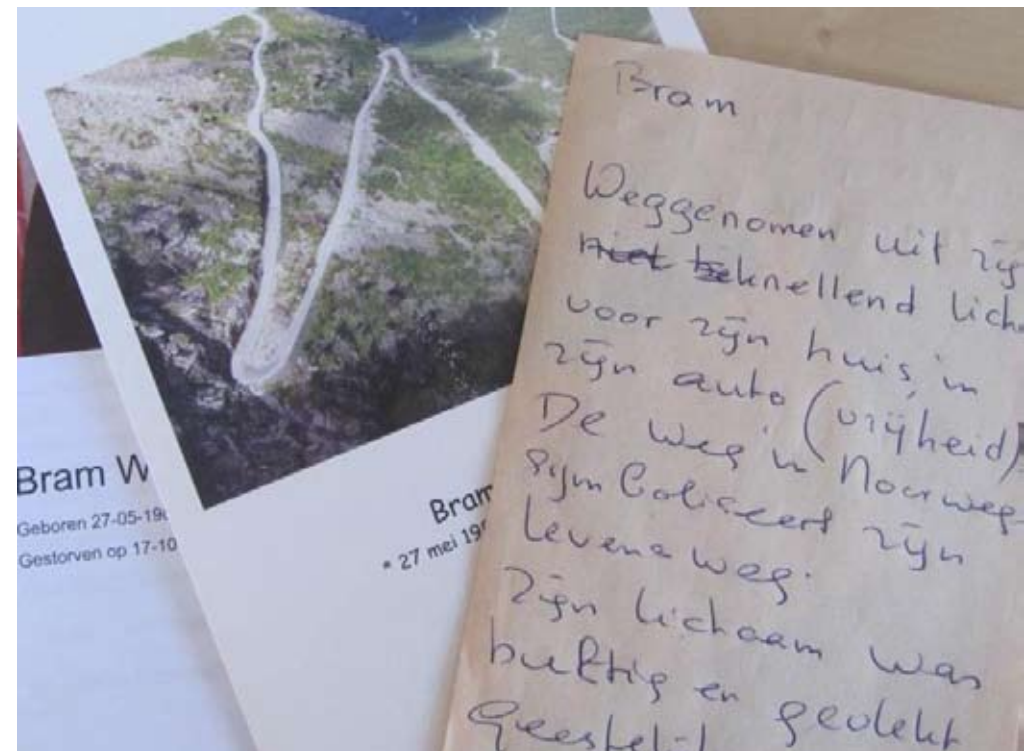 Bram W
Geboren 27-05-19
Gestorven op 17-10
Bram
* 27 mei 19
Bram
Weggenomen uit zijn
niet beknellend licha
voor zijn huis, in
zijn auto (vrijheid)
De weg in Noorweg
symboliseert zijn
levensweg.
Zijn lichaam was
bultig en gedekt